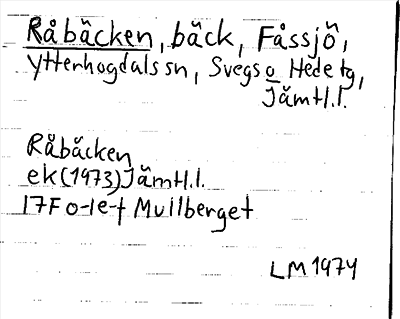 Råbäcken, bäck, Fåssjö,
Ytterhogdals sn, Svegs o Hede tg,
Jämtl.l.
Råbäcken
ek (1973) Jämtl.l.
17F o-1e-f Mullberget
LM 1974